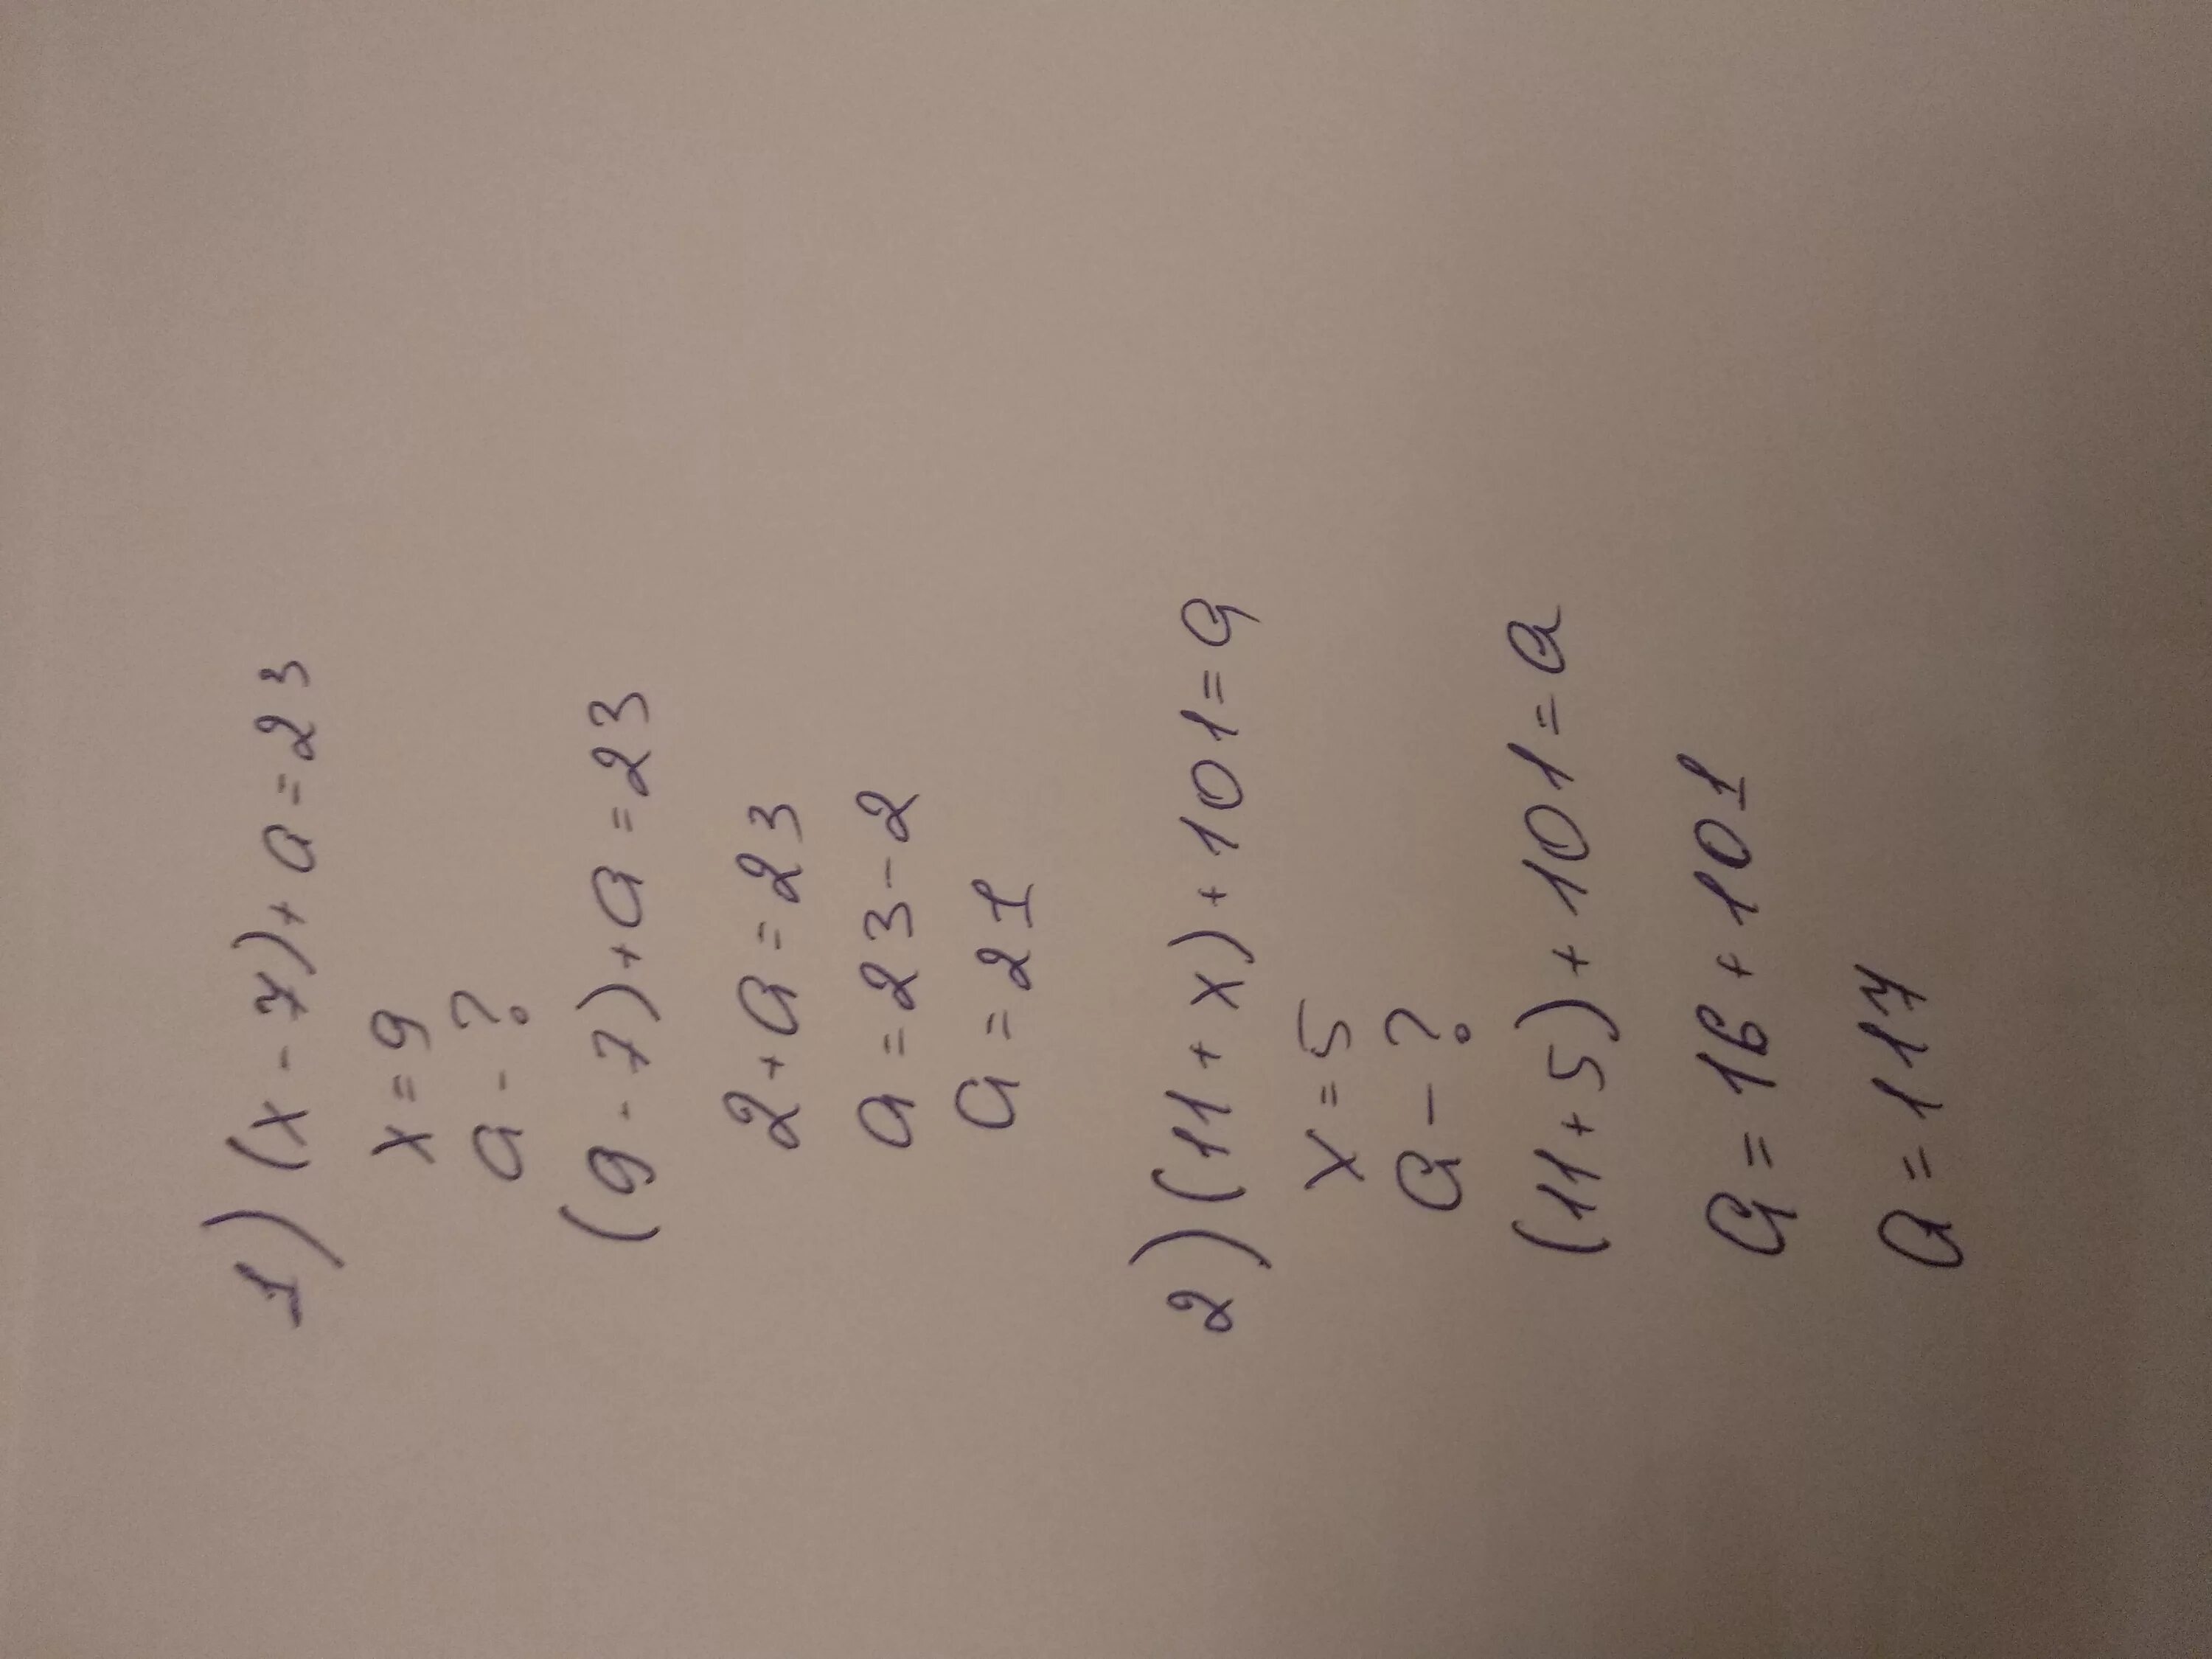 1) (x - 7) + a = 23
x = 9
a - ?
(9 - 7) + a = 23
2 + a = 23
a = 23 - 2
a = 21
2) (11 + x) + 101 = a
x = 5
a - ?
(11 + 5) + 101 = a
a = 16 + 101
a = 117